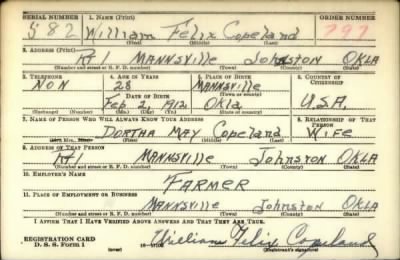 SERIAL NUMBER 1. NAME (Print) ORDER NUMBER
582 William Felix Copeland 797
(First) (Middle) (Last)
2. ADDRESS (Print)
Rt 1 MANNSVILLE JOHNSTON OKLA
(Number and street or R. F. D. number) (Town) (County) (State)
3. TELEPHONE 4. AGE IN YEARS 5. PLACE OF BIRTH 6. COUNTRY OF CITIZENSHIP
NON 28 MANNSVILLE
DATE OF BIRTH (Town or county)
Feb 2 1912 Okla U.S.A.
(Exchange) (Number) (Mo.) (Day) (Yr.) (State or country)
7. NAME OF PERSON WHO WILL ALWAYS KNOW YOUR ADDRESS 8. RELATIONSHIP OF THAT PERSON
DORTHA MAY Copeland WIFE
(First) (Middle) (Last)
9. ADDRESS OF THAT PERSON
Rt 1 MANNSVILLE JOHNSTON OKLA
(Number and street or R. F. D. number) (Town) (County) (State)
10. EMPLOYER'S NAME
FARMER
11. PLACE OF EMPLOYMENT OR BUSINESS
MANNSVILLE JOHNSTON OKLA
(Number and street or R. F. D. number) (Town) (County) (State)
I AFFIRM THAT I HAVE VERIFIED ABOVE ANSWERS AND THAT THEY ARE TRUE.
REGISTRATION CARD
D. S. S. Form 1 (over) William Felix Copeland
(Registrant's signature)